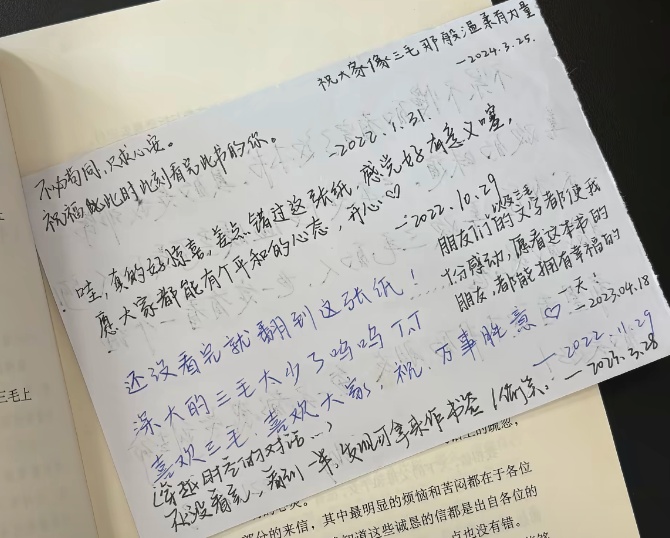 祝大家像三毛那般温柔有力量
—2024.3.25.
不必尚同,只求心安。
祝福能此时此刻看完此书的你。
—2022.1.31.
哇,真的好惊喜,差点错过这张纸,感觉好有意义喔,
愿大家都能有个平和的心态,开心♡
—2022.10.29
以及三毛
朋友们的文字都使我
十分感动,愿看这本书的
朋友,都能拥有幸福的
一天!
—2023.04.18
还没看完就翻到这张纸!
深大的三毛太少了呜呜T.T
喜欢三毛,喜欢大家,祝,万事胜意♡
—2022.11.29
(穿越时空的对话...)
还没看完,看到一半,发现可拿来作书签(偷笑。—2023.3.28
三毛上
部分的来信,其中最明显的烦恼和苦闷都在于各位
知道这些诚恳的信都是出自各位的
一点也没有错。